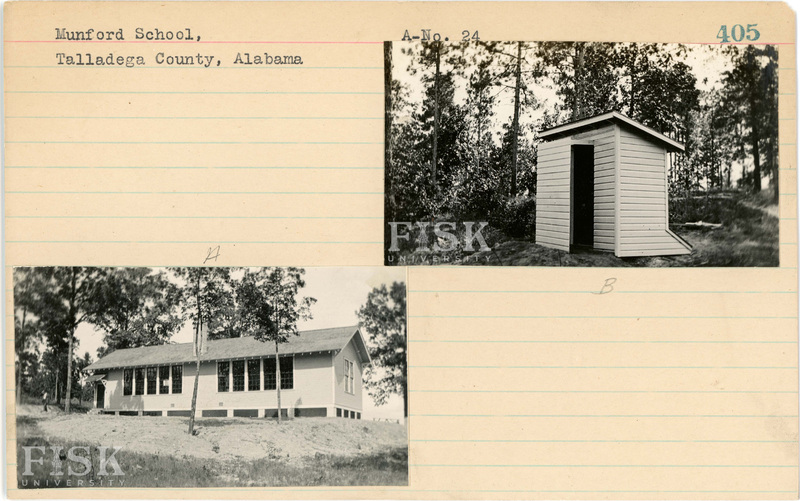 Munford School,
Talladega County, Alabama
A-No. 24
405
FISK
UNIVERSITY
A
B
FISK
UNIVERSITY